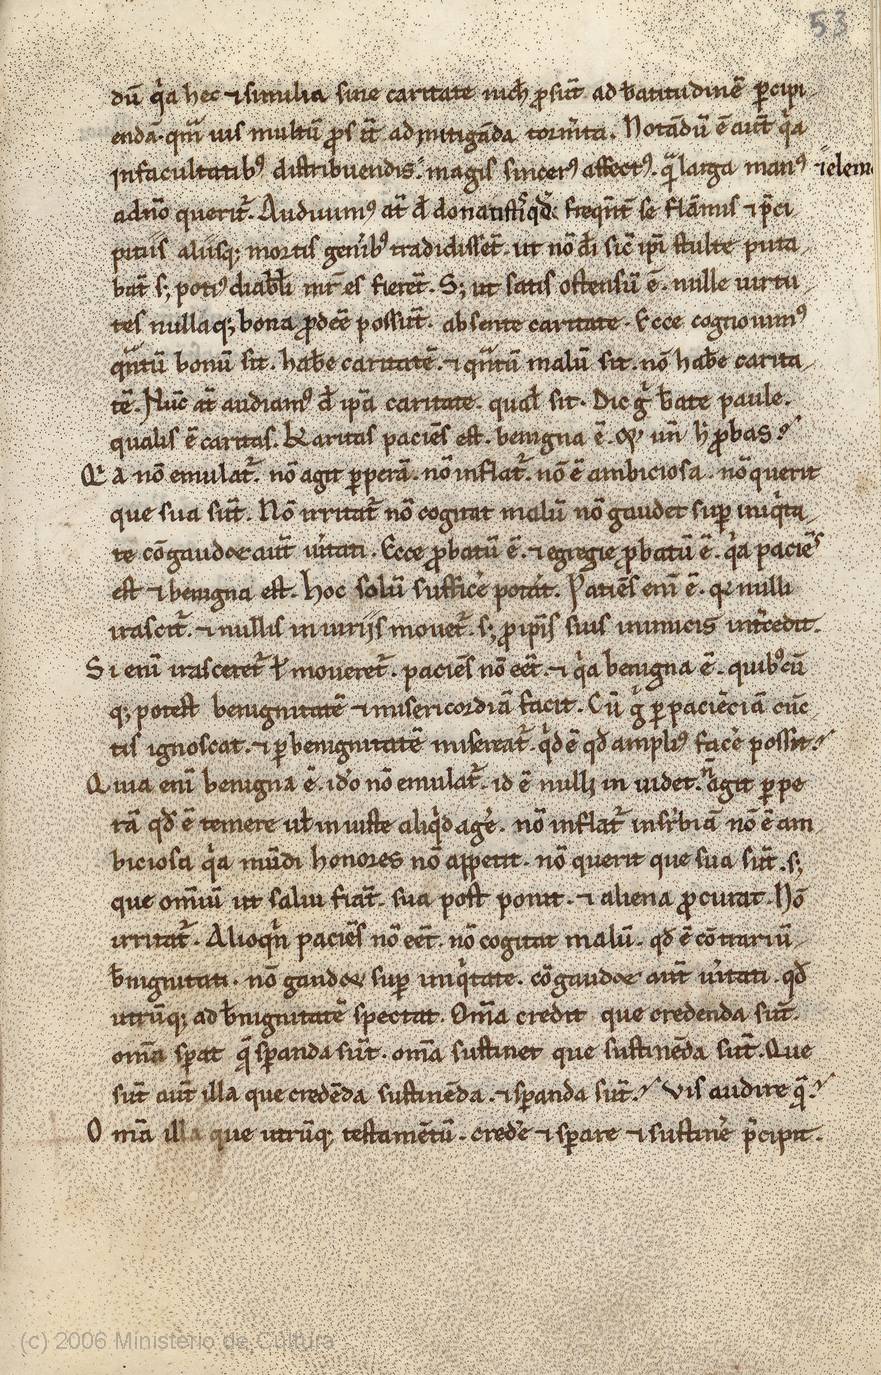 53
dū q̇a hec ⁊ similia sine caritate nich̄ ꝓsūt ad b̄atitudinē ꝑcipi
endā. qm̄ uis multū ꝓs īt ad mitigāda tormīta. Notādū ē aut̄ q̇a
in facultatibꝰ distribuendis magis sincerꝰ affectꝰ. q̄ larga manꝰ ⁊ elem
a dn̄o querit᷑. Audiuimꝰ at̄ d̄ donatistis qd̄ freqn̄t se flāmis ⁊ p̄ci
pitiis aliisq; mortis gen̄ibꝰ tradidissēt. ut nō d̄i sic̄ ip̄i stulte puta
bāt s; potiꝰ diabli mr̄es fierēt. S; ut satis ostensū ē. nulle uirtu
tes nullaq; bona ꝓdeē possūt. absente caritate. Ecce cognouimꝰ
qn̄tū bonū sit. hab̄e caritatē. ⁊ qn̄tū malū sit. nō hab̄e carita
tē. Nūc at̄ audiamꝰ d̄ ip̄a caritate. qual̄ sit. Dic ġ b̄ate paule.
qualis ē caritas. Karitas paciēs est. benigna ē. un̄ h̄ ꝓbas?
Q̇a nō emulat᷑. nō agit ꝑperā. nō inflat᷑. nō ē ambiciosa. nō querit
que sua sūt. Nō irritat᷑ nō cogitat malū nō gaudet suꝑ iniq̇ta
te cōgaudet aut̄ u̇itati. Ecce ꝓbatū ē. ⁊ egregie ꝓbatū ē. q̇a paciēs
est ⁊ benigna est. hoc solū suffice᷑ potat̄. Patiēs enī ē. q̇ nulli
irascit᷑. ⁊ nullis iniuriis mouet᷑. s; ꝓ ip̄is suis inimicis int̄cedit.
Si enī irasceret᷑ ł moueret᷑. paciēs nō eēt. ⁊ q̇a benigna ē. quibꝰcū
q; potest benignitatē ⁊ misericordiā facit. Cū ġ ꝑ paciēciā cūc
tis ignoscat. ⁊ ꝑ benignitatē misereat᷑. q̇d ē qd̄ ampliꝰ face᷑ possit?
Quia enī benigna ē. id̄o nō emulat᷑. id ē nulli inuidet. n̄ agit ꝑpe
rā qd̄ ē temere ul̄ iniuste aliq̇d age᷑. nō inflat᷑ in sṗbiā nō ē am
biciosa q̇a mūdi honores nō appetit. nō querit que sua sūt. s;
que omniū ut salui fiāt. sua post ponit. ⁊ aliena ꝓcurat. Nō
irritat᷑. Alioqn̄ paciēs nō eēt. nō cogitat malū. qd̄ ē cōtrariū
b̄nignitati. nō gaudet suꝑ iniq̇tate. cōgaudet aut̄ u̇itati. qd̄
utrūq; ad b̄nignitatē spectat. Om̄a credit que credenda sūt.
om̄a sꝑat q̄ sꝑanda sūt. om̄a sustinet que sustinēda sūt. Que
sūt aut̄ illa que credēda sustinēda. ⁊ sꝑanda sūt? Vis audire q̄?
Om̄a illa que utrūq; testamētū. crede᷑ ⁊ sꝑare ⁊ sustine᷑ p̄cipit.
(c) 2006 Ministerio de Cultura